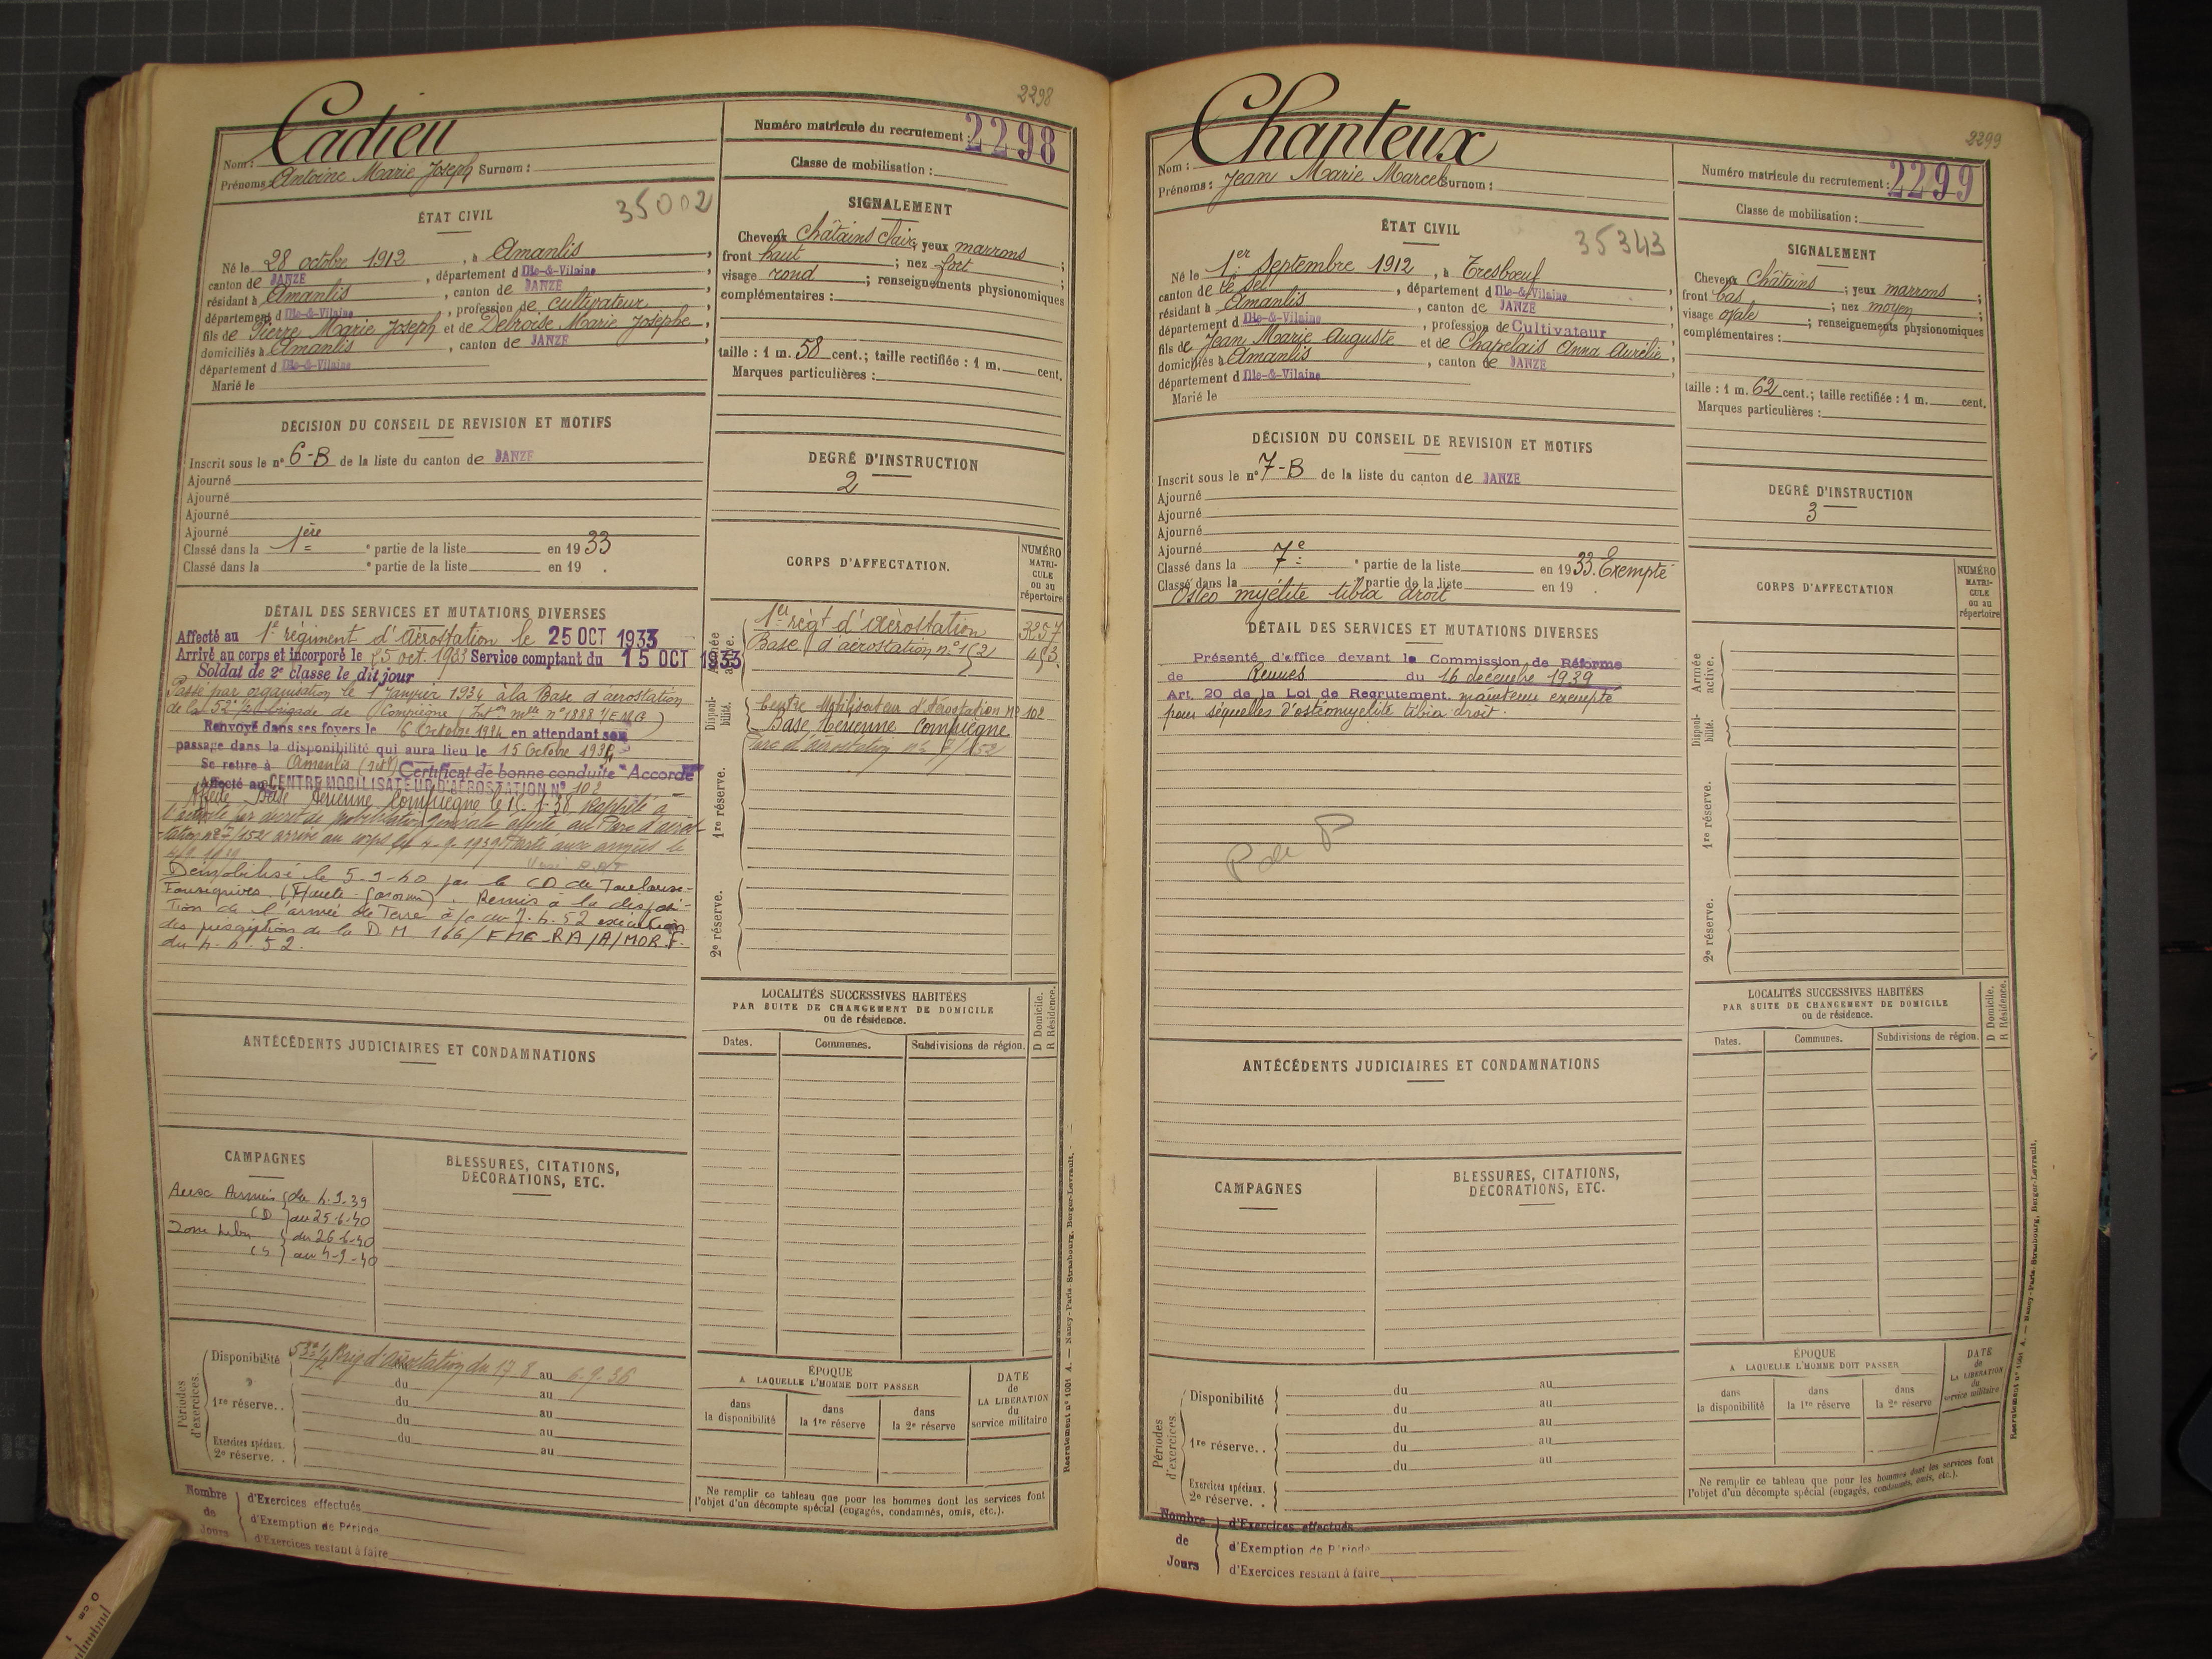 2298
Cadieu
Nom :
Prénoms : Antoine Marie Joseph Surnom :
Numéro matricule du recrutement : 2298
Classe de mobilisation :
ÉTAT CIVIL
35002
Né le 28 octobre 1912, à Amanlis,
canton de JANZÉ, département d Ille-&-Vilaine,
résidant à Amanlis, canton de JANZÉ,
département d Ille-&-Vilaine, profession de cultivateur,
fils de Pierre Marie Joseph et de Delroise Marie Josephe,
domiciliés à Amanlis, canton de JANZÉ,
département d Ille-&-Vilaine
Marié le
SIGNALEMENT
Cheveux Châtains clairs, yeux marrons ;
front haut ; nez fort ;
visage rond ; renseignements physionomiques
complémentaires :
taille : 1 m. 58 cent.; taille rectifiée : 1 m. cent.
Marques particulières :
DÉCISION DU CONSEIL DE REVISION ET MOTIFS
Inscrit sous le n° 6-B de la liste du canton de JANZÉ
Ajourné
Ajourné
Ajourné
Ajourné
Classé dans la 1ère e partie de la liste en 19 33
Classé dans la e partie de la liste en 19 .
DEGRÉ D'INSTRUCTION
2
DÉTAIL DES SERVICES ET MUTATIONS DIVERSES
Affecté au 1er régiment d'Aérostation le 25 OCT 1933
Arrivé au corps et incorporé le 25 oct. 1933 Service comptant du 15 OCT 1933
Soldat de 2e classe le dit jour
Passé par organisation le 1er Janvier 1934 à la Base d'aérostation
de la 52e 1/2 Brigade de Compiègne
Renvoyé dans ses foyers le 6 Octobre 1934 en attendant son
passage dans la disponibilité qui aura lieu le 15 Octobre 1934
Se retire à Amanlis Certificat de bonne conduite "Accordé"
Affecté au CENTRE MOBILISATEUR D'AÉROSTATION N° 102
Affecté Base Aérienne Compiègne le 15. 1. 38 Rappelé à
l'activité par décret de mobilisation générale affecté au Parc d'aéros-
tation n° 7/152 arrivé au corps le 4. 9. 1939 Parti aux armées le
4/9. 1939
Démobilisé le 5-9-40 par le CD de Toulouse-
Fonsegrives (Haute-Garonne). Remis à la disposi-
tion de l'armée de Terre à/c du 7.4.52 exécution
des prescriptions de la D.M 166/EMG-RA/A/MOB.F.
du 4.4.52.
CORPS D'AFFECTATION.
NUMÉRO MATRICULE ou au répertoire
Armée active.
1er régt d'aérostation 3257
Base d'aérostation n° 1/2
Disponibilité.
Centre Mobilisateur d'Aérostation N° 102
Base Aérienne Compiègne
Parc d'aérostation
1re réserve.
2e réserve.
LOCALITÉS SUCCESSIVES HABITÉES
PAR SUITE DE CHANGEMENT DE DOMICILE
ou de résidence.
D Domicile.
R Résidence.
Dates. Communes. Subdivisions de région.
ANTÉCÉDENTS JUDICIAIRES ET CONDAMNATIONS
CAMPAGNES
Aux Armées du 4.9.39
CD au 25-6-40
Zone Libre du 26-6-40
CS au 4-9-40
BLESSURES, CITATIONS,
DÉCORATIONS, ETC.
Périodes d'exercices.
Disponibilité 52e 1/2 Brig d'aérostation du 17.8 au 6.9.36
du au
1re réserve. . du au
du au
du au
Exercices spéciaux. 2e réserve. . au
ÉPOQUE
A LAQUELLE L'HOMME DOIT PASSER
dans la disponibilité
dans la 1re réserve
dans la 2e réserve
DATE de LA LIBÉRATION du service militaire
Ne remplir ce tableau que pour les hommes dont les services font
l'objet d'un décompte spécial (engagés, condamnés, omis, etc.).
Nombre de Jours
d'Exercices effectués
d'Exemption de Période
d'Exercices restant à faire
Recrutement n° 1001 A. — Nancy-Paris-Strasbourg, Berger-Levrault.
2299
Chanteux
Nom :
Prénoms : Jean Marie Marcel Surnom :
Numéro matricule du recrutement : 2299
Classe de mobilisation :
ÉTAT CIVIL
35343
Né le 1er Septembre 1912, à Tresboeuf,
canton de Le Sel, département d Ille-&-Vilaine,
résidant à Amanlis, canton de JANZÉ,
département d Ille-&-Vilaine, profession de Cultivateur,
fils de Jean Marie Auguste et de Chapelais Anna Aurélie,
domiciliés à Amanlis, canton de JANZÉ,
département d Ille-&-Vilaine
Marié le
SIGNALEMENT
Cheveux Châtains ; yeux marrons ;
front bas ; nez moyen ;
visage ovale ; renseignements physionomiques
complémentaires :
taille : 1 m. 62 cent.; taille rectifiée : 1 m. cent.
Marques particulières :
DÉCISION DU CONSEIL DE REVISION ET MOTIFS
Inscrit sous le n° 7-B de la liste du canton de JANZÉ
Ajourné
Ajourné
Ajourné
Ajourné
Classé dans la 7e e partie de la liste en 19 33. Exempté
Classé dans la e partie de la liste en 19
Ostéo myélite tibia droit
DEGRÉ D'INSTRUCTION
3
DÉTAIL DES SERVICES ET MUTATIONS DIVERSES
Présenté d'office devant la Commission de Réforme
de Rennes du 16 décembre 1939
Art. 20 de la Loi de Recrutement. maintenu exempté
pour séquelles d'ostéomyélite tibia droit.
P de P
CORPS D'AFFECTATION
NUMÉRO MATRICULE ou au répertoire
Armée active.
Disponibilité.
1re réserve.
2e réserve.
LOCALITÉS SUCCESSIVES HABITÉES
PAR SUITE DE CHANGEMENT DE DOMICILE
ou de résidence.
D Domicile.
R Résidence.
Dates. Communes. Subdivisions de région.
ANTÉCÉDENTS JUDICIAIRES ET CONDAMNATIONS
CAMPAGNES
BLESSURES, CITATIONS,
DÉCORATIONS, ETC.
Périodes d'exercices.
Disponibilité du au
du au
1re réserve. . du au
du au
du au
Exercices spéciaux. 2e réserve. .
ÉPOQUE
A LAQUELLE L'HOMME DOIT PASSER
dans la disponibilité
dans la 1re réserve
dans la 2e réserve
DATE de LA LIBÉRATION du service militaire
Ne remplir ce tableau que pour les hommes dont les services font
l'objet d'un décompte spécial (engagés, condamnés, omis, etc.).
Nombre de Jours
d'Exercices effectués
d'Exemption de Période
d'Exercices restant à faire
Recrutement n° 1001 A. — Nancy-Paris-Strasbourg, Berger-Levrault.